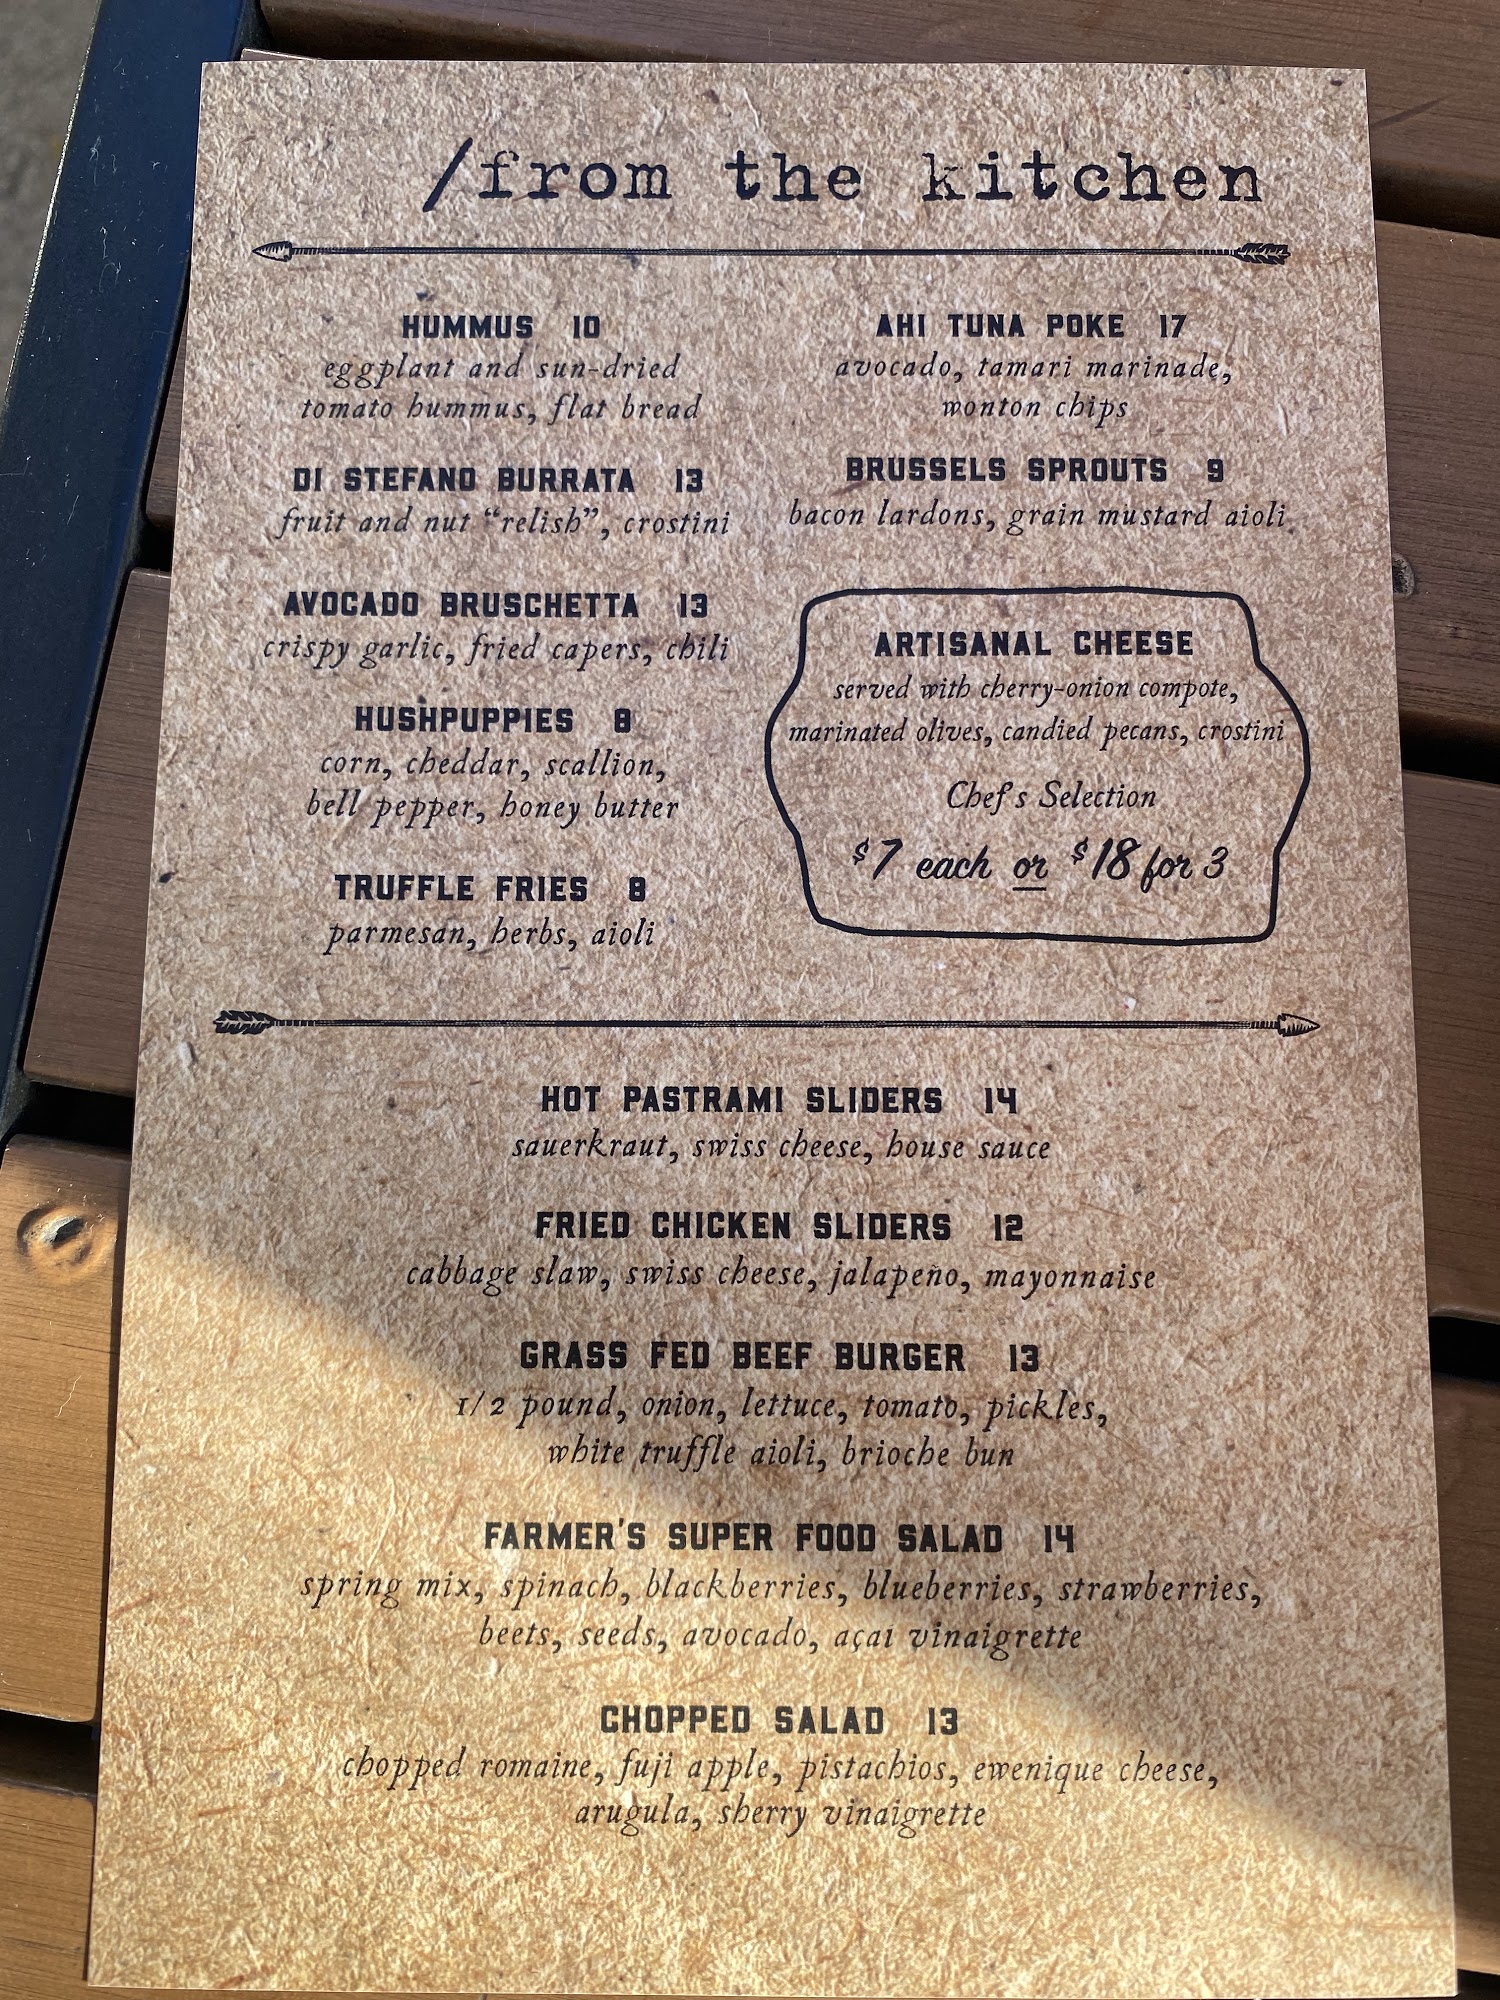 /from the kitchen
HUMMUS 10
eggplant and sun-dried
tomato hummus, flat bread
DI STEFANO BURRATA 13
fruit and nut “relish”, crostini
AVOCADO BRUSCHETTA 13
crispy garlic, fried capers, chili
HUSHPUPPIES 8
corn, cheddar, scallion,
bell pepper, honey butter
TRUFFLE FRIES 8
parmesan, herbs, aioli
AHI TUNA POKE 17
avocado, tamari marinade,
wonton chips
BRUSSELS SPROUTS 9
bacon lardons, grain mustard aioli
ARTISANAL CHEESE
served with cherry-onion compote,
marinated olives, candied pecans, crostini
Chef's Selection
$7 each or $18 for 3
HOT PASTRAMI SLIDERS 14
sauerkraut, swiss cheese, house sauce
FRIED CHICKEN SLIDERS 12
cabbage slaw, swiss cheese, jalapeño, mayonnaise
GRASS FED BEEF BURGER 13
1/2 pound, onion, lettuce, tomato, pickles,
white truffle aioli, brioche bun
FARMER'S SUPER FOOD SALAD 14
spring mix, spinach, blackberries, blueberries, strawberries,
beets, seeds, avocado, açaı vinaigrette
CHOPPED SALAD 13
chopped romaine, fuji apple, pistachios, ewenique cheese,
arugula, sherry vinaigrette